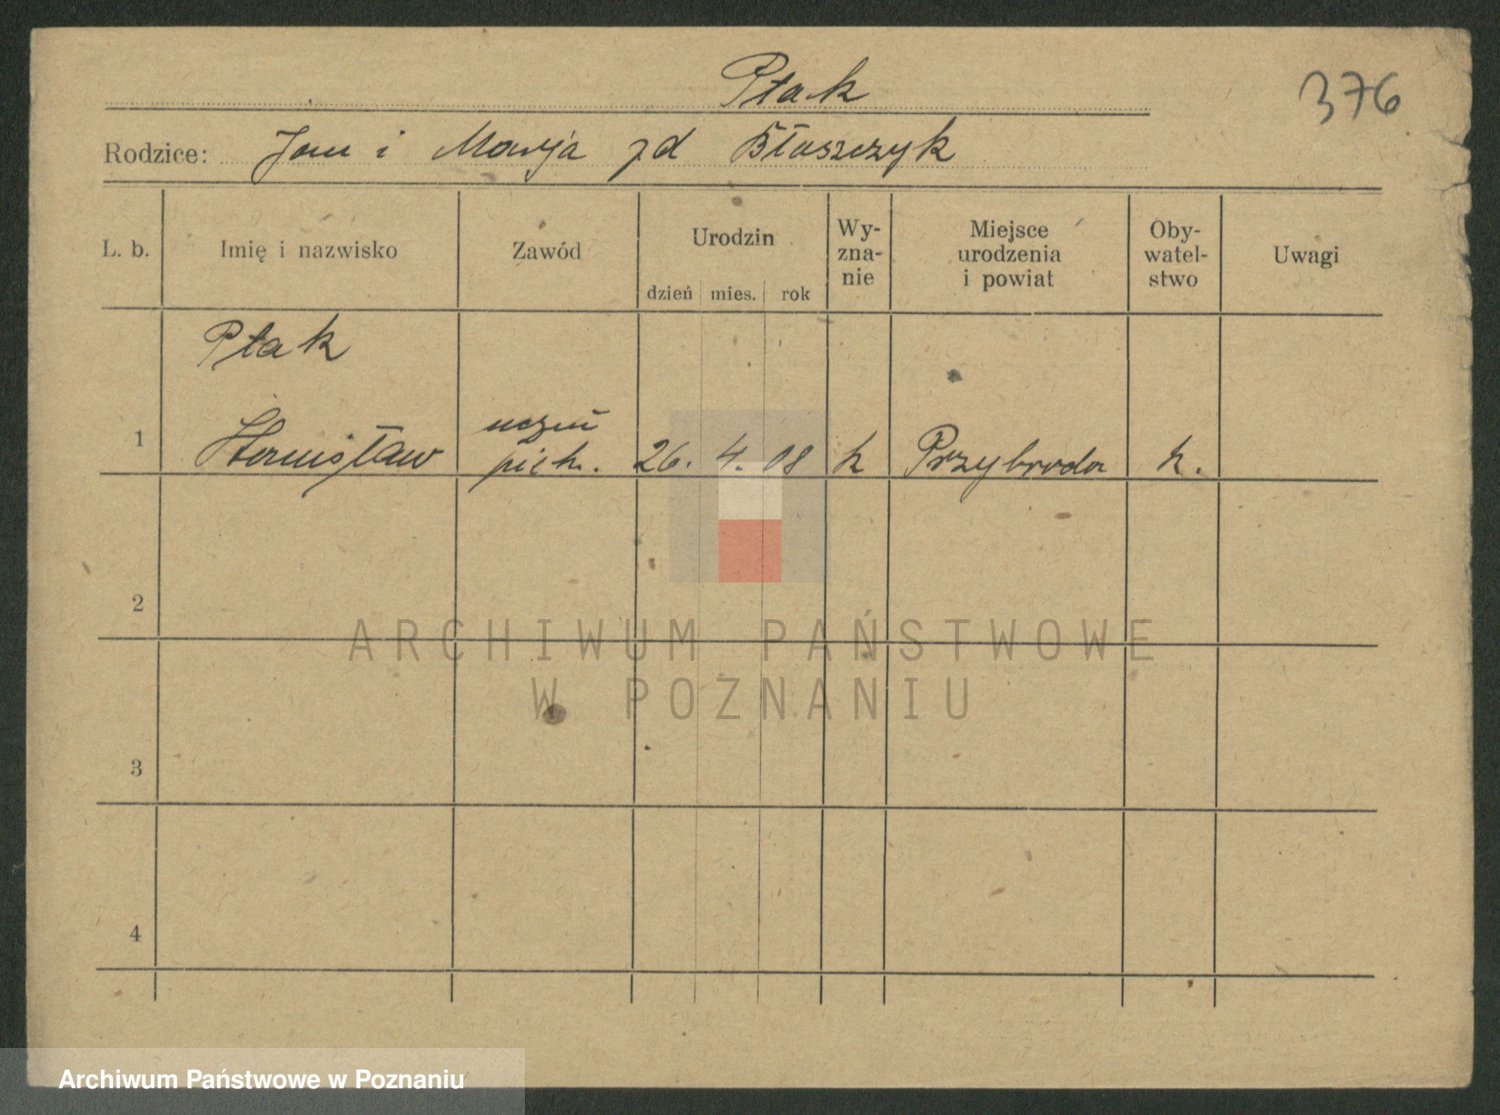 Ptak
376
Rodzice: Jan i Marja zd Błaszczyk
L. b. Imię i nazwisko Zawód Urodzin dzień mies. rok Wy-zna-nie Miejsce urodzenia i powiat Oby-watel-stwo Uwagi
Ptak
uczeń
1 Stanisław piek. 26. 4. 08 k Przybroda k.
2
ARCHIWUM PAŃSTWOWE
W POZNANIU
3
4
Archiwum Państwowe w Poznaniu